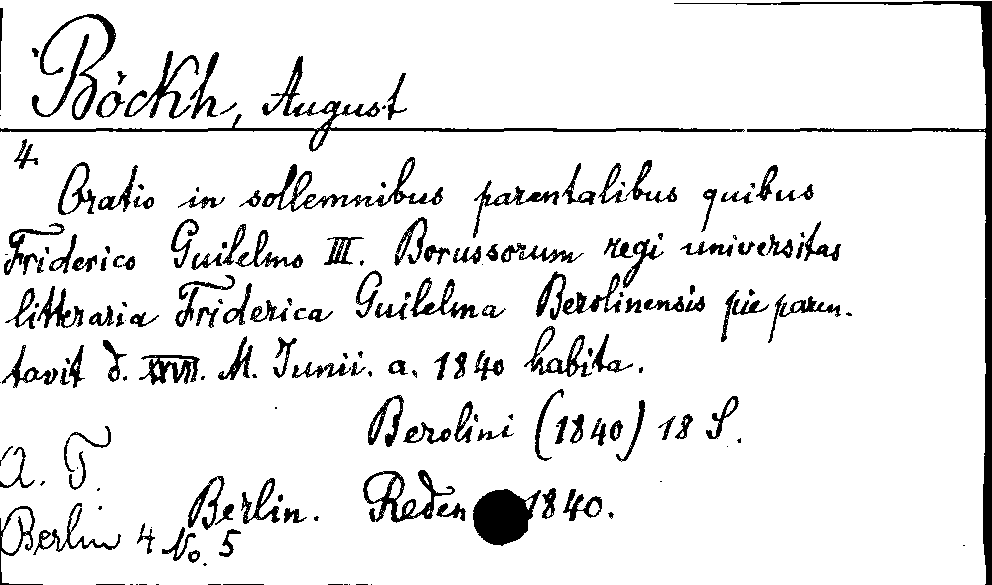 Böckh, August
4.
Oratio in sollemnibus parentalibus quibus
Friderico Guilelmo III. Borussorum regi universitas
litteraria Friderica Guilelma Berolinensis pie paren-
tavit d. XXVII. M. Junii. a. 1840 habita.
Berolini (1840) 18 S.
A. T.
Berlin. Reden 1840.
Berlin 4 No. 5